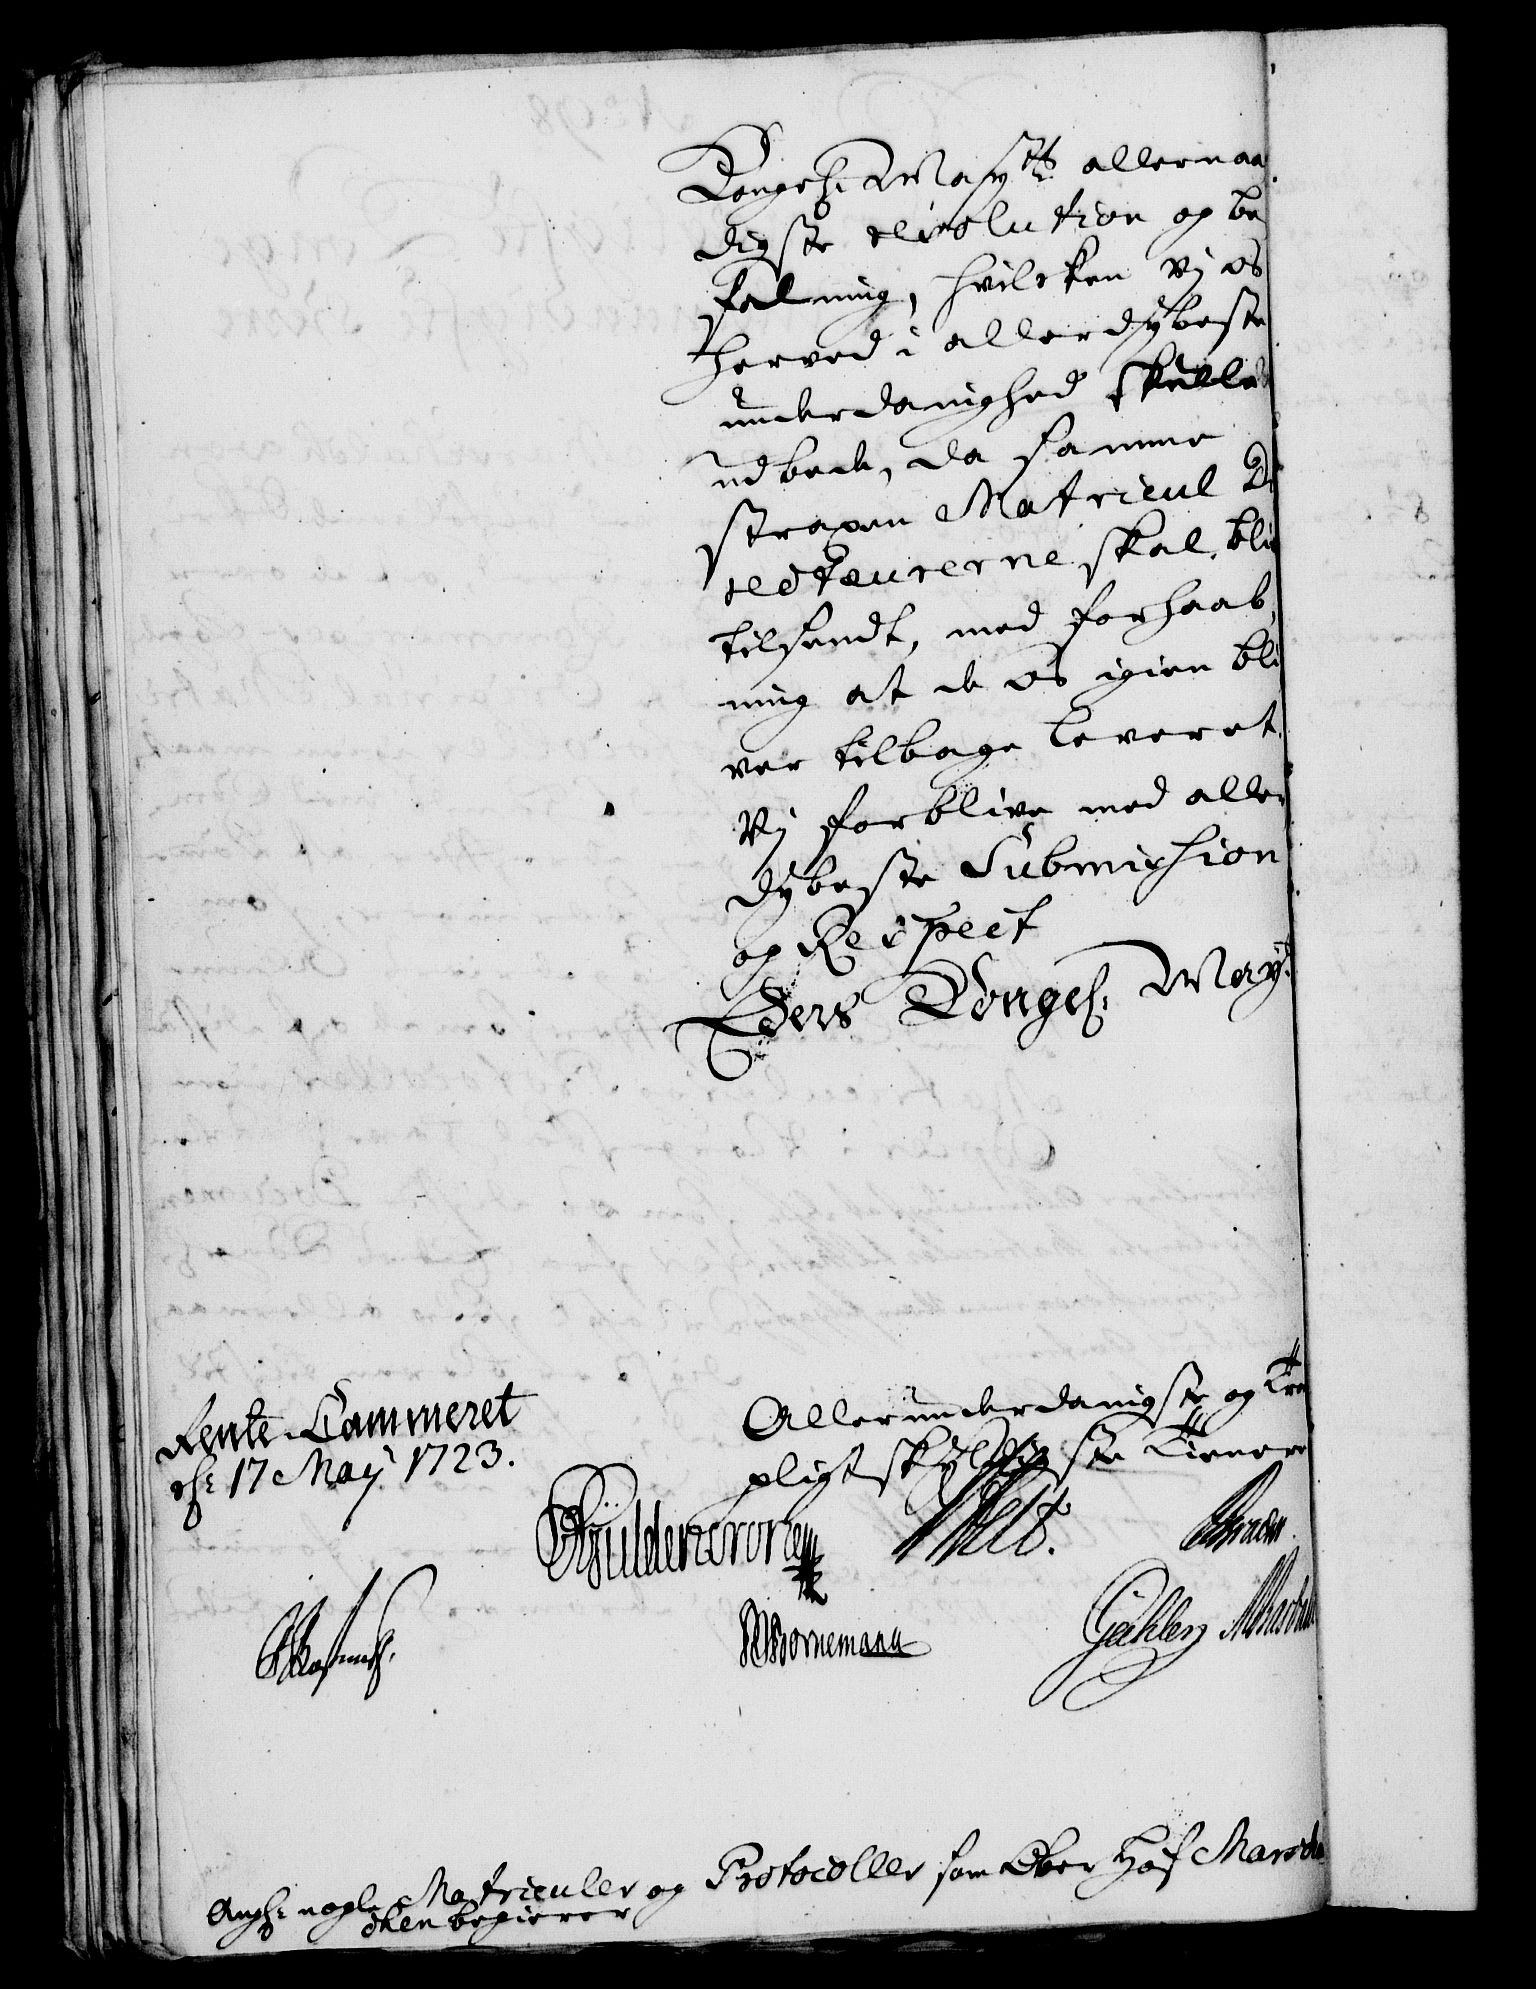 Kongel: Mayts allernaa
digste resolution og be
falning, hvilcken Vj os
herved i allerdybeste
underdanighed skulle
udbede, da samme
strapen Matricul Di
recteurerne skal bli
tilsendt, med forhaab,
ning at de os igien bli
ver tilbage leveret.
Vj forblive med aller
dybeste Submission
og Respect
Eders Kongel: May:
Allerunderdanigste og tro
pligtskyldigste Tienere
Rente-Cammeret
d: 17 May 1723.
Güldencrone
Bornemann
Gähler
Angl: nogle Matriculer og Protocoller som Ober Hof Marscha
chen begierer